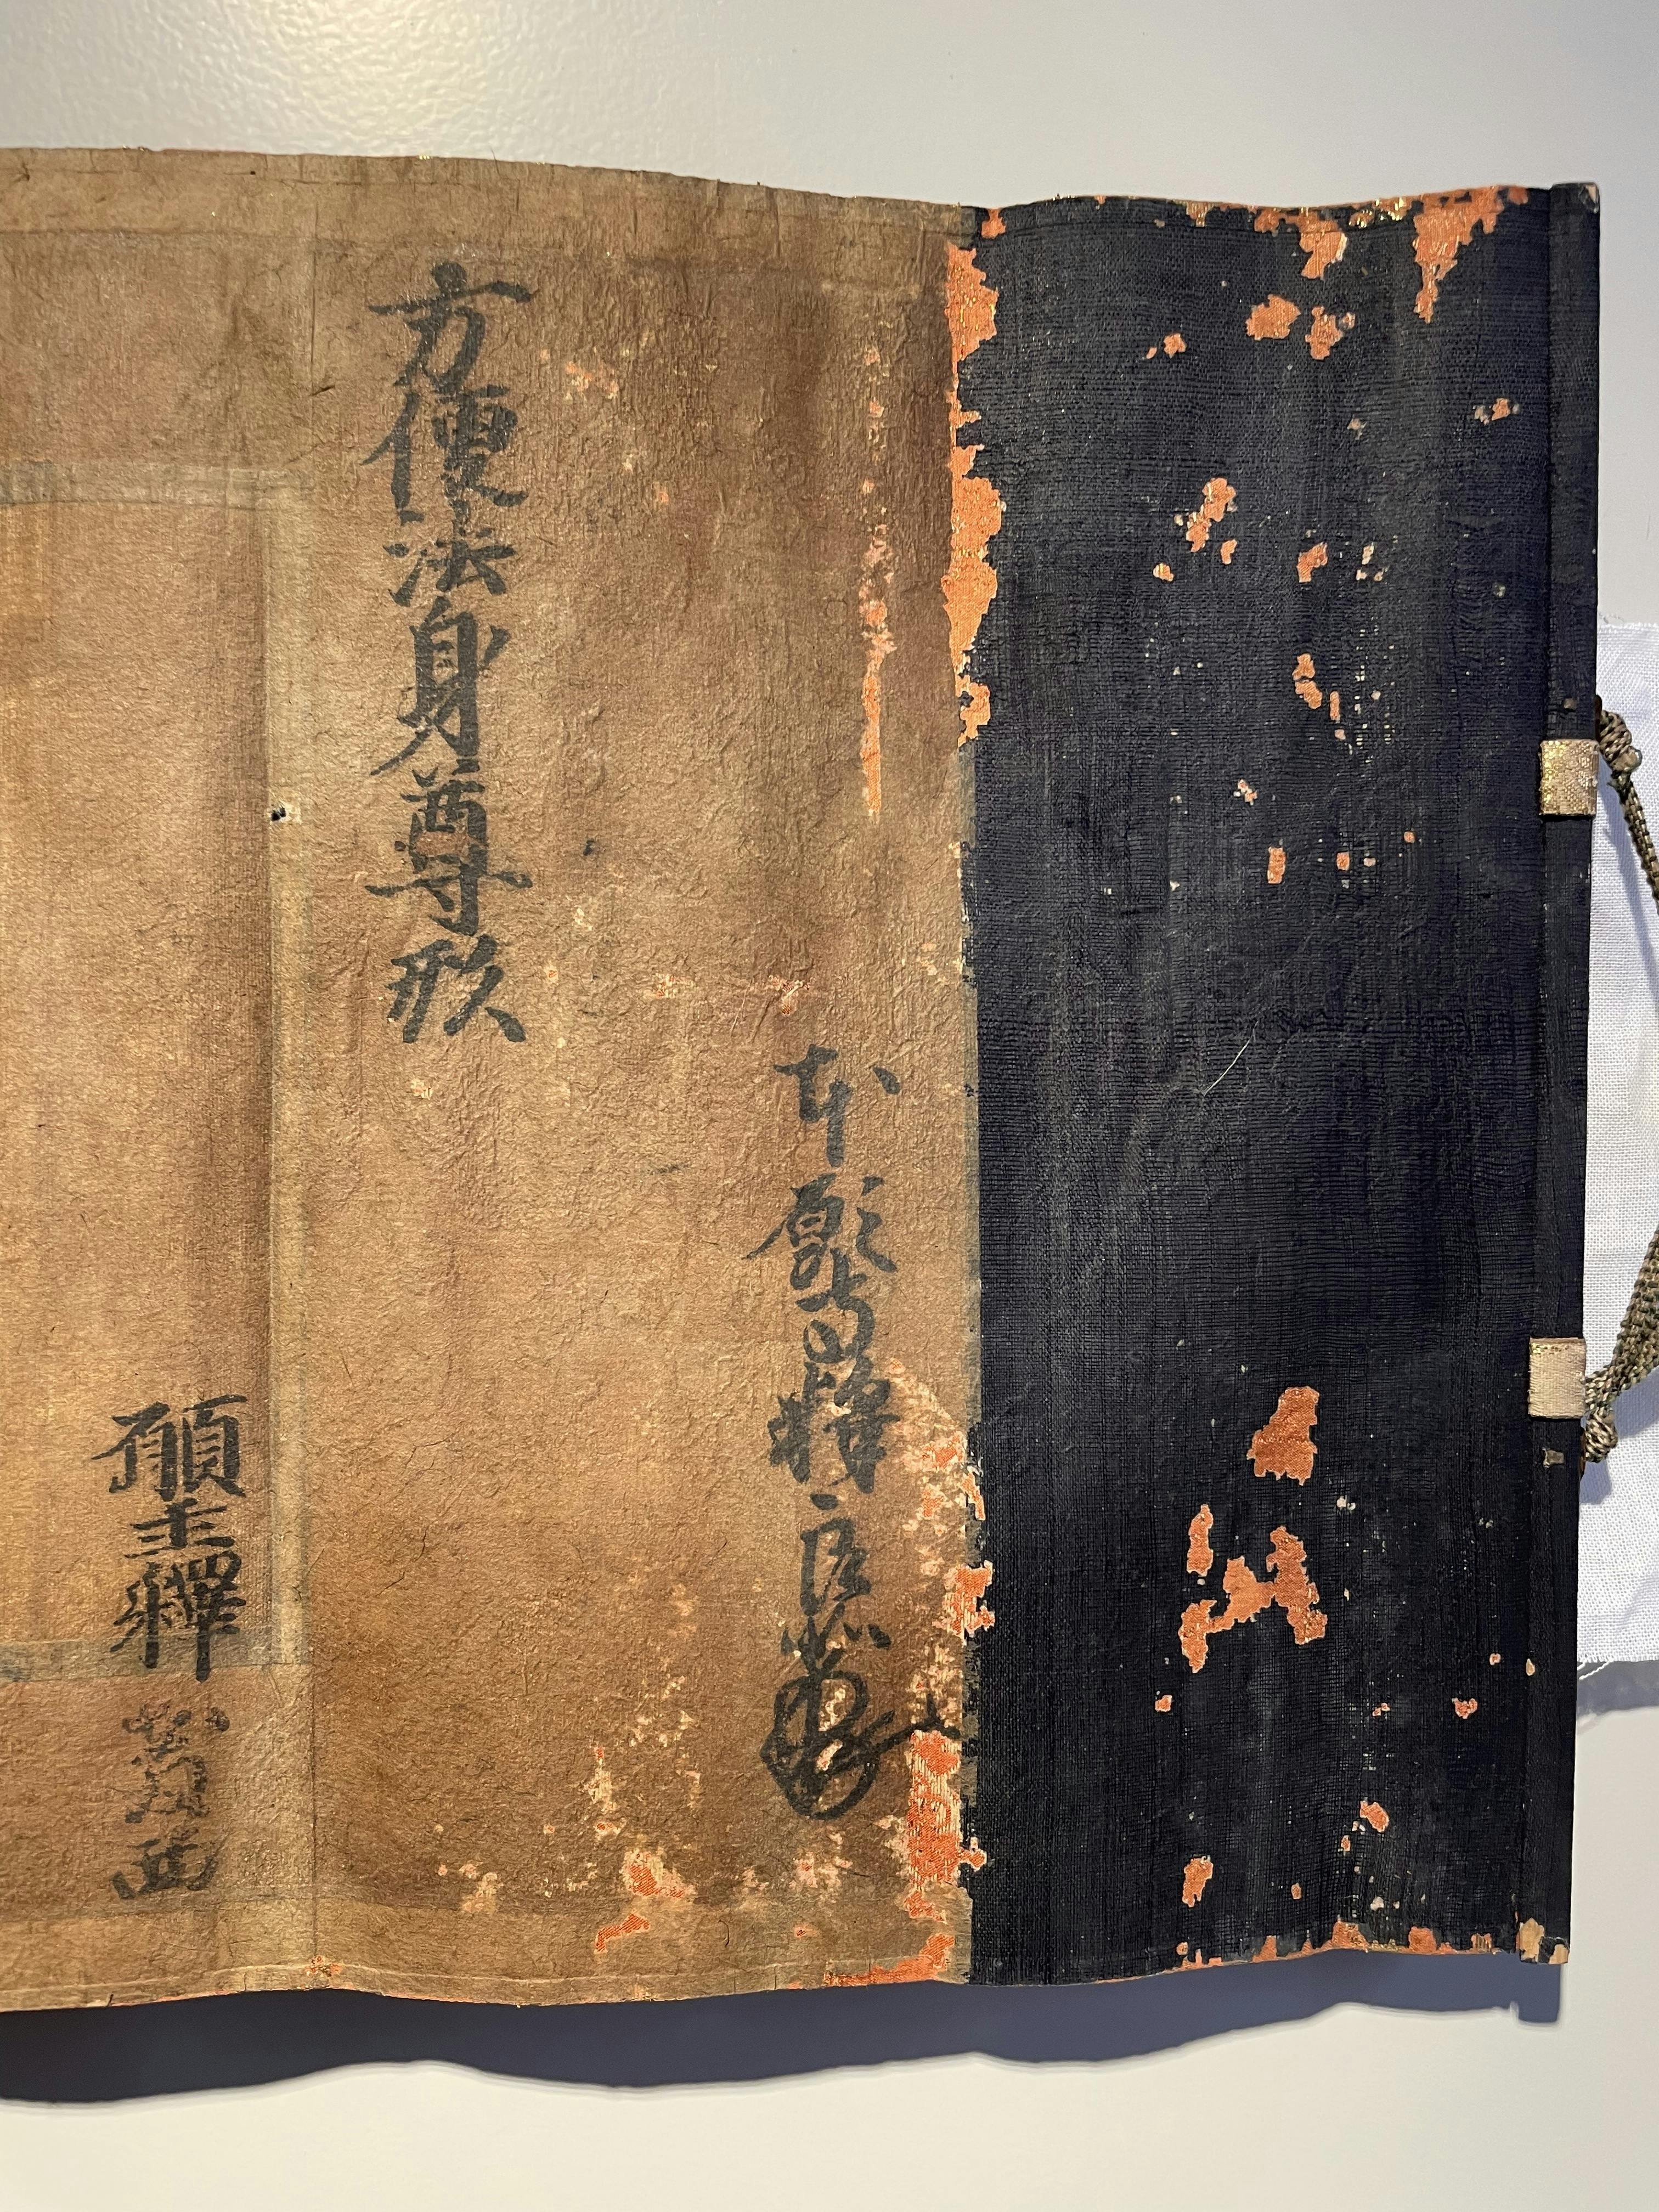 本願寺釋
方便法身尊形
願主釋西